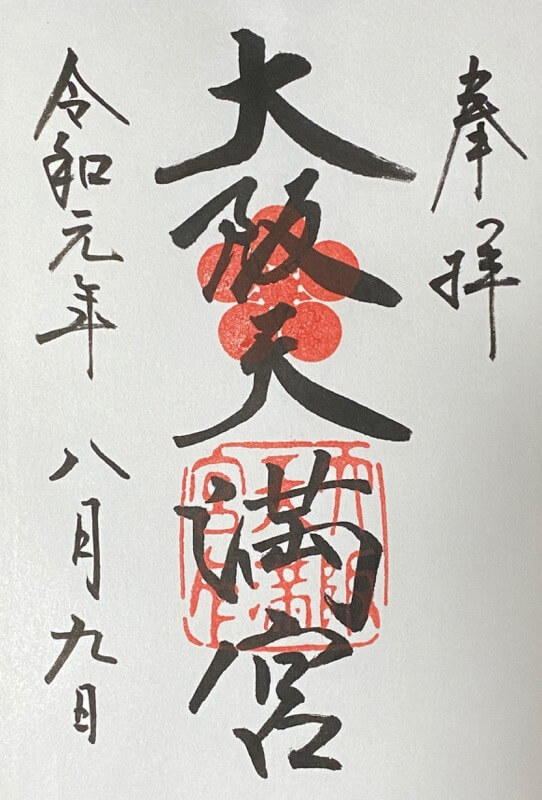 奉拝
大阪天満宮
令和元年 八月九日